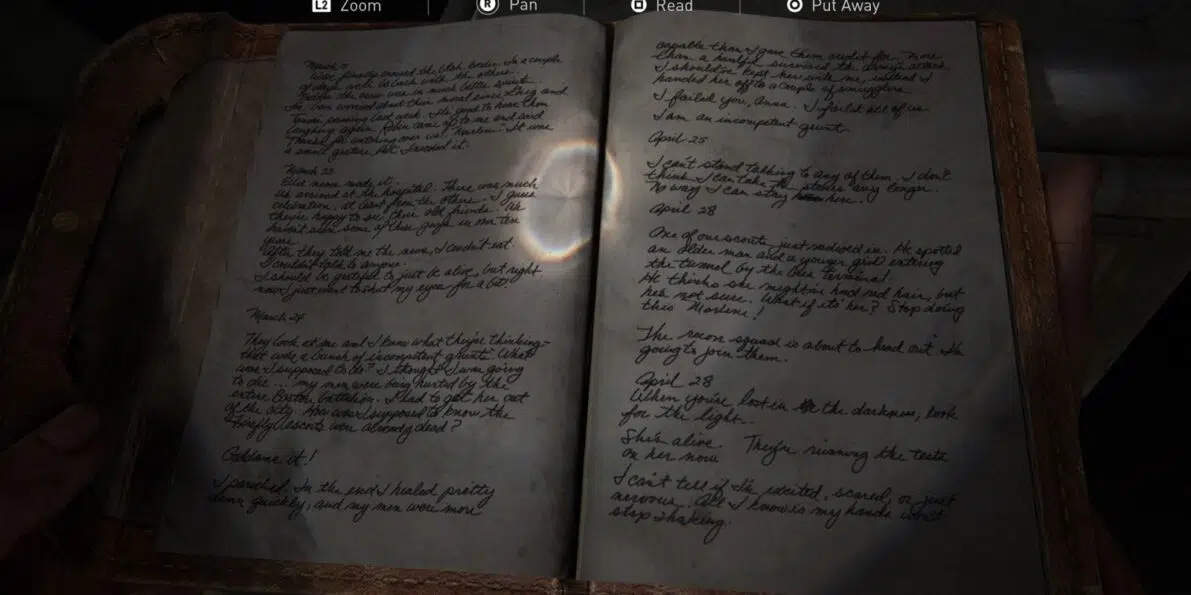 L2 Zoom
R Pan
Read
Put Away
March
We've finally crossed the Utah border. In a couple
of days we'll be back with the others.
Today the men were in much better spirits.
I was worried about their moral since Greg and
passing last week. It's good to hear them
laughing again. Robin came up to me and said
"thanks for watching over us, It was
a small gesture but I needed it.
March 22
Else mom made it.
We arrived at the hospital. There was much
celebration, at least from the others. I guess
they're happy to see their old friends. We
haven't seen some of these guys in over ten
years.
After they told me the news, I couldn't eat.
I couldn't talk to anyone.
I should be grateful to just be alive, but right
now I just want to shut my eyes for a bit.
March 24
They look at me and I know what they're thinking-
that we're a bunch of incompetent grunts. What
was I supposed to do? I thought I was going
to die... my men were being hunted by the
entire Boston battalion. I had to get her out
of the city. How was I supposed to know the
Firefly escorts were already dead?
Goddamn it!
I panicked. In the end I healed pretty
damn quickly, and my men were more
capable than I gave them credit for. More
than a handful survived the damn attack.
I should've kept her with me, instead I
handed her off to a couple of smugglers.
I failed you, Anna. I failed all of us.
I am an incompetent grunt.
April 25
I can't stand talking to any of them. I don't
think I can take the any longer.
No way I can stay here.
April 28
One of our scouts just radioed in. He spotted
an older man and a younger girl entering
the tunnel by the bus terminal.
He thinks she might've had red hair, but
he's not sure. What if it's her? Stop doing
this Marlene!
The recon squad is about to head out. I'm
going to join them.
April 28
When you're lost in the darkness, look
for the light..
She's alive. They're running the tests
on her now
I can't tell if I'm excited, scared, or just
nervous. All I know is my hands won't
stop shaking.